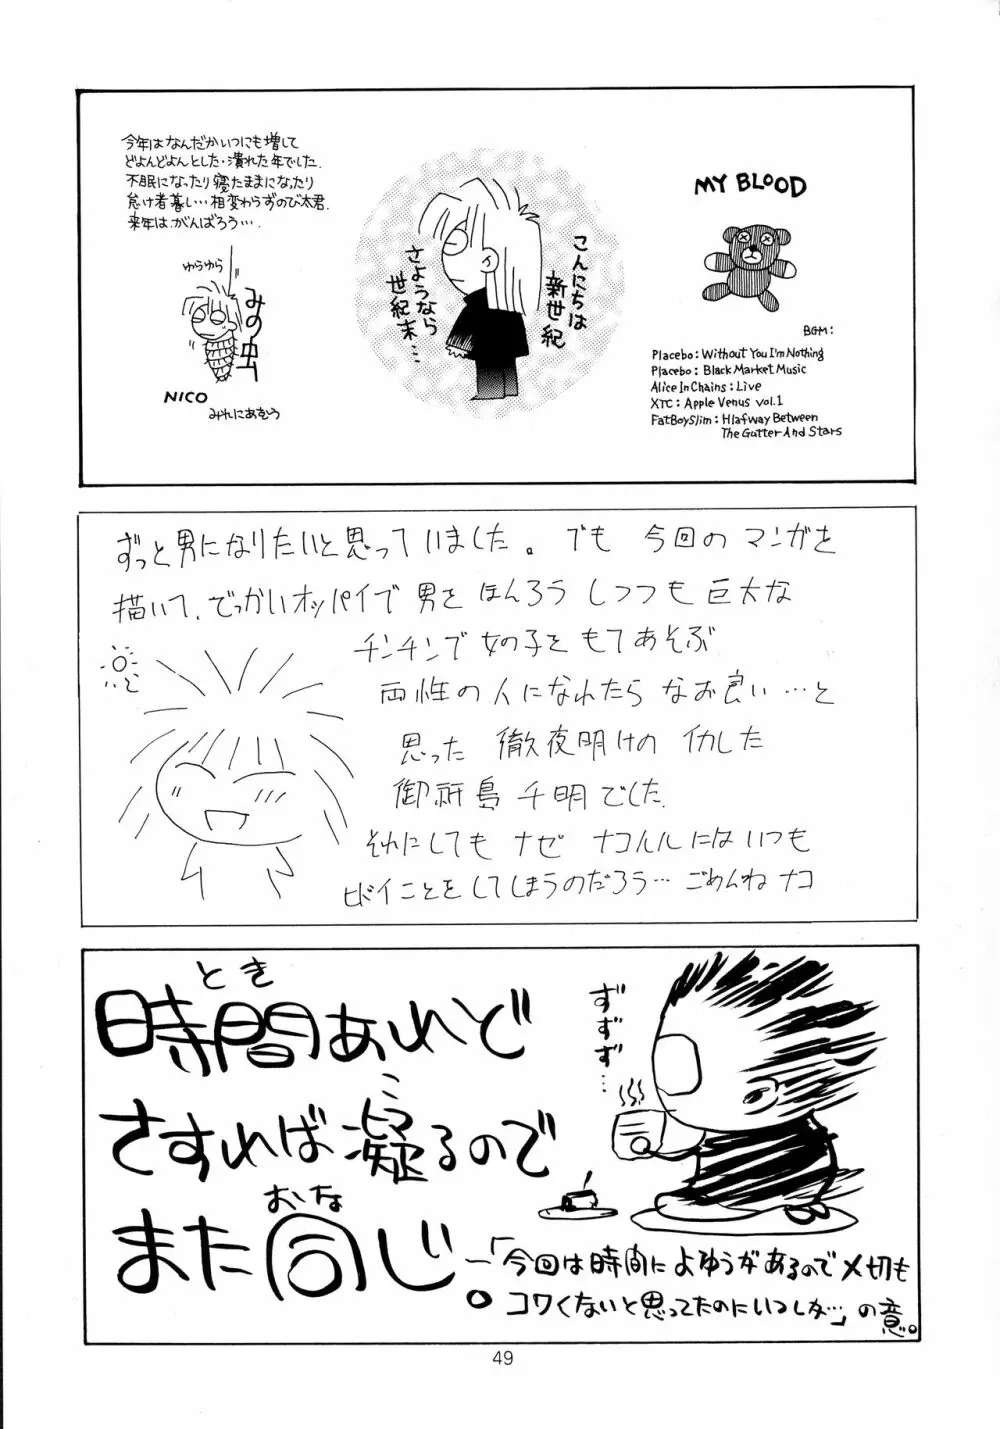 今年はなんだかいつにも増して
どよんどよんとした・潰れた年でした.
不眠になったり寝たままになったり
怠け者暮し…相変わらずのび太君.
来年は.がんばろう….
ゆらゆら
みの虫
NICO
みれにあむう
こんにちは
新世紀
さようなら
世紀末…
MY BLOOD
BGM:
Placebo: Without You I'm Nothing
Placebo: Black Market Music
Alice In Chains: Live
XTC: Apple Venus vol.1
FatBoySlim: Hlafway Between
The Gutter And Stars
ずっと男になりたいと思っていました。でも 今回の マンガを
描いて、でっかいオッパイで 男を ほんろう しつつも 巨大な
チンチンで 女の子を もてあそぶ
両性の人になれたら なお良い…と
思った 徹夜明けの イカした
御祈島千明でした.
それにしても ナゼ ナコルルにはいつも
ヒドイことをしてしまうのだろう… ごめんね ナコ
とき
時間あれど
さすれば凝るので
こ
おな
また同じ。
ずずず…
―「今回は時間によゆうがあるので〆切も
コワくないと思ってたのにいつしか…」の意。
49